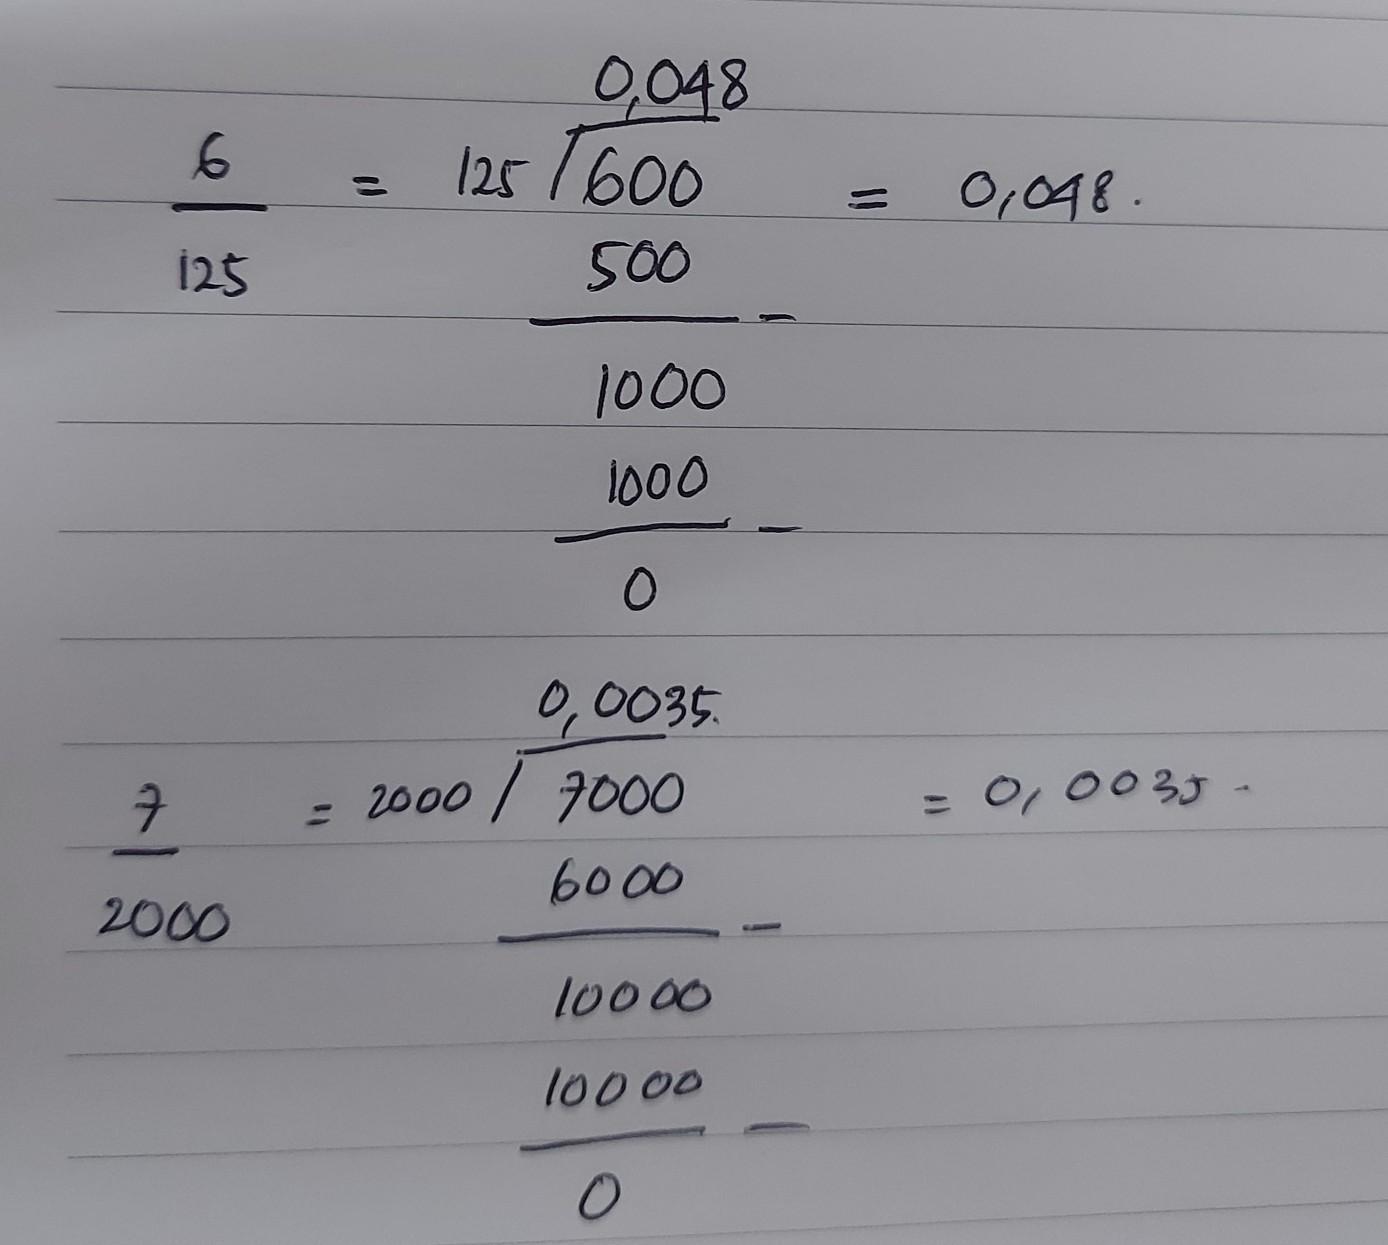 0,048
6 = 125 / 600 = 0,048.
125 500
-
1000
1000
-
0
0,0035.
7 = 2000 / 7000 = 0,0035.
2000 6000
-
10000
10000
-
0